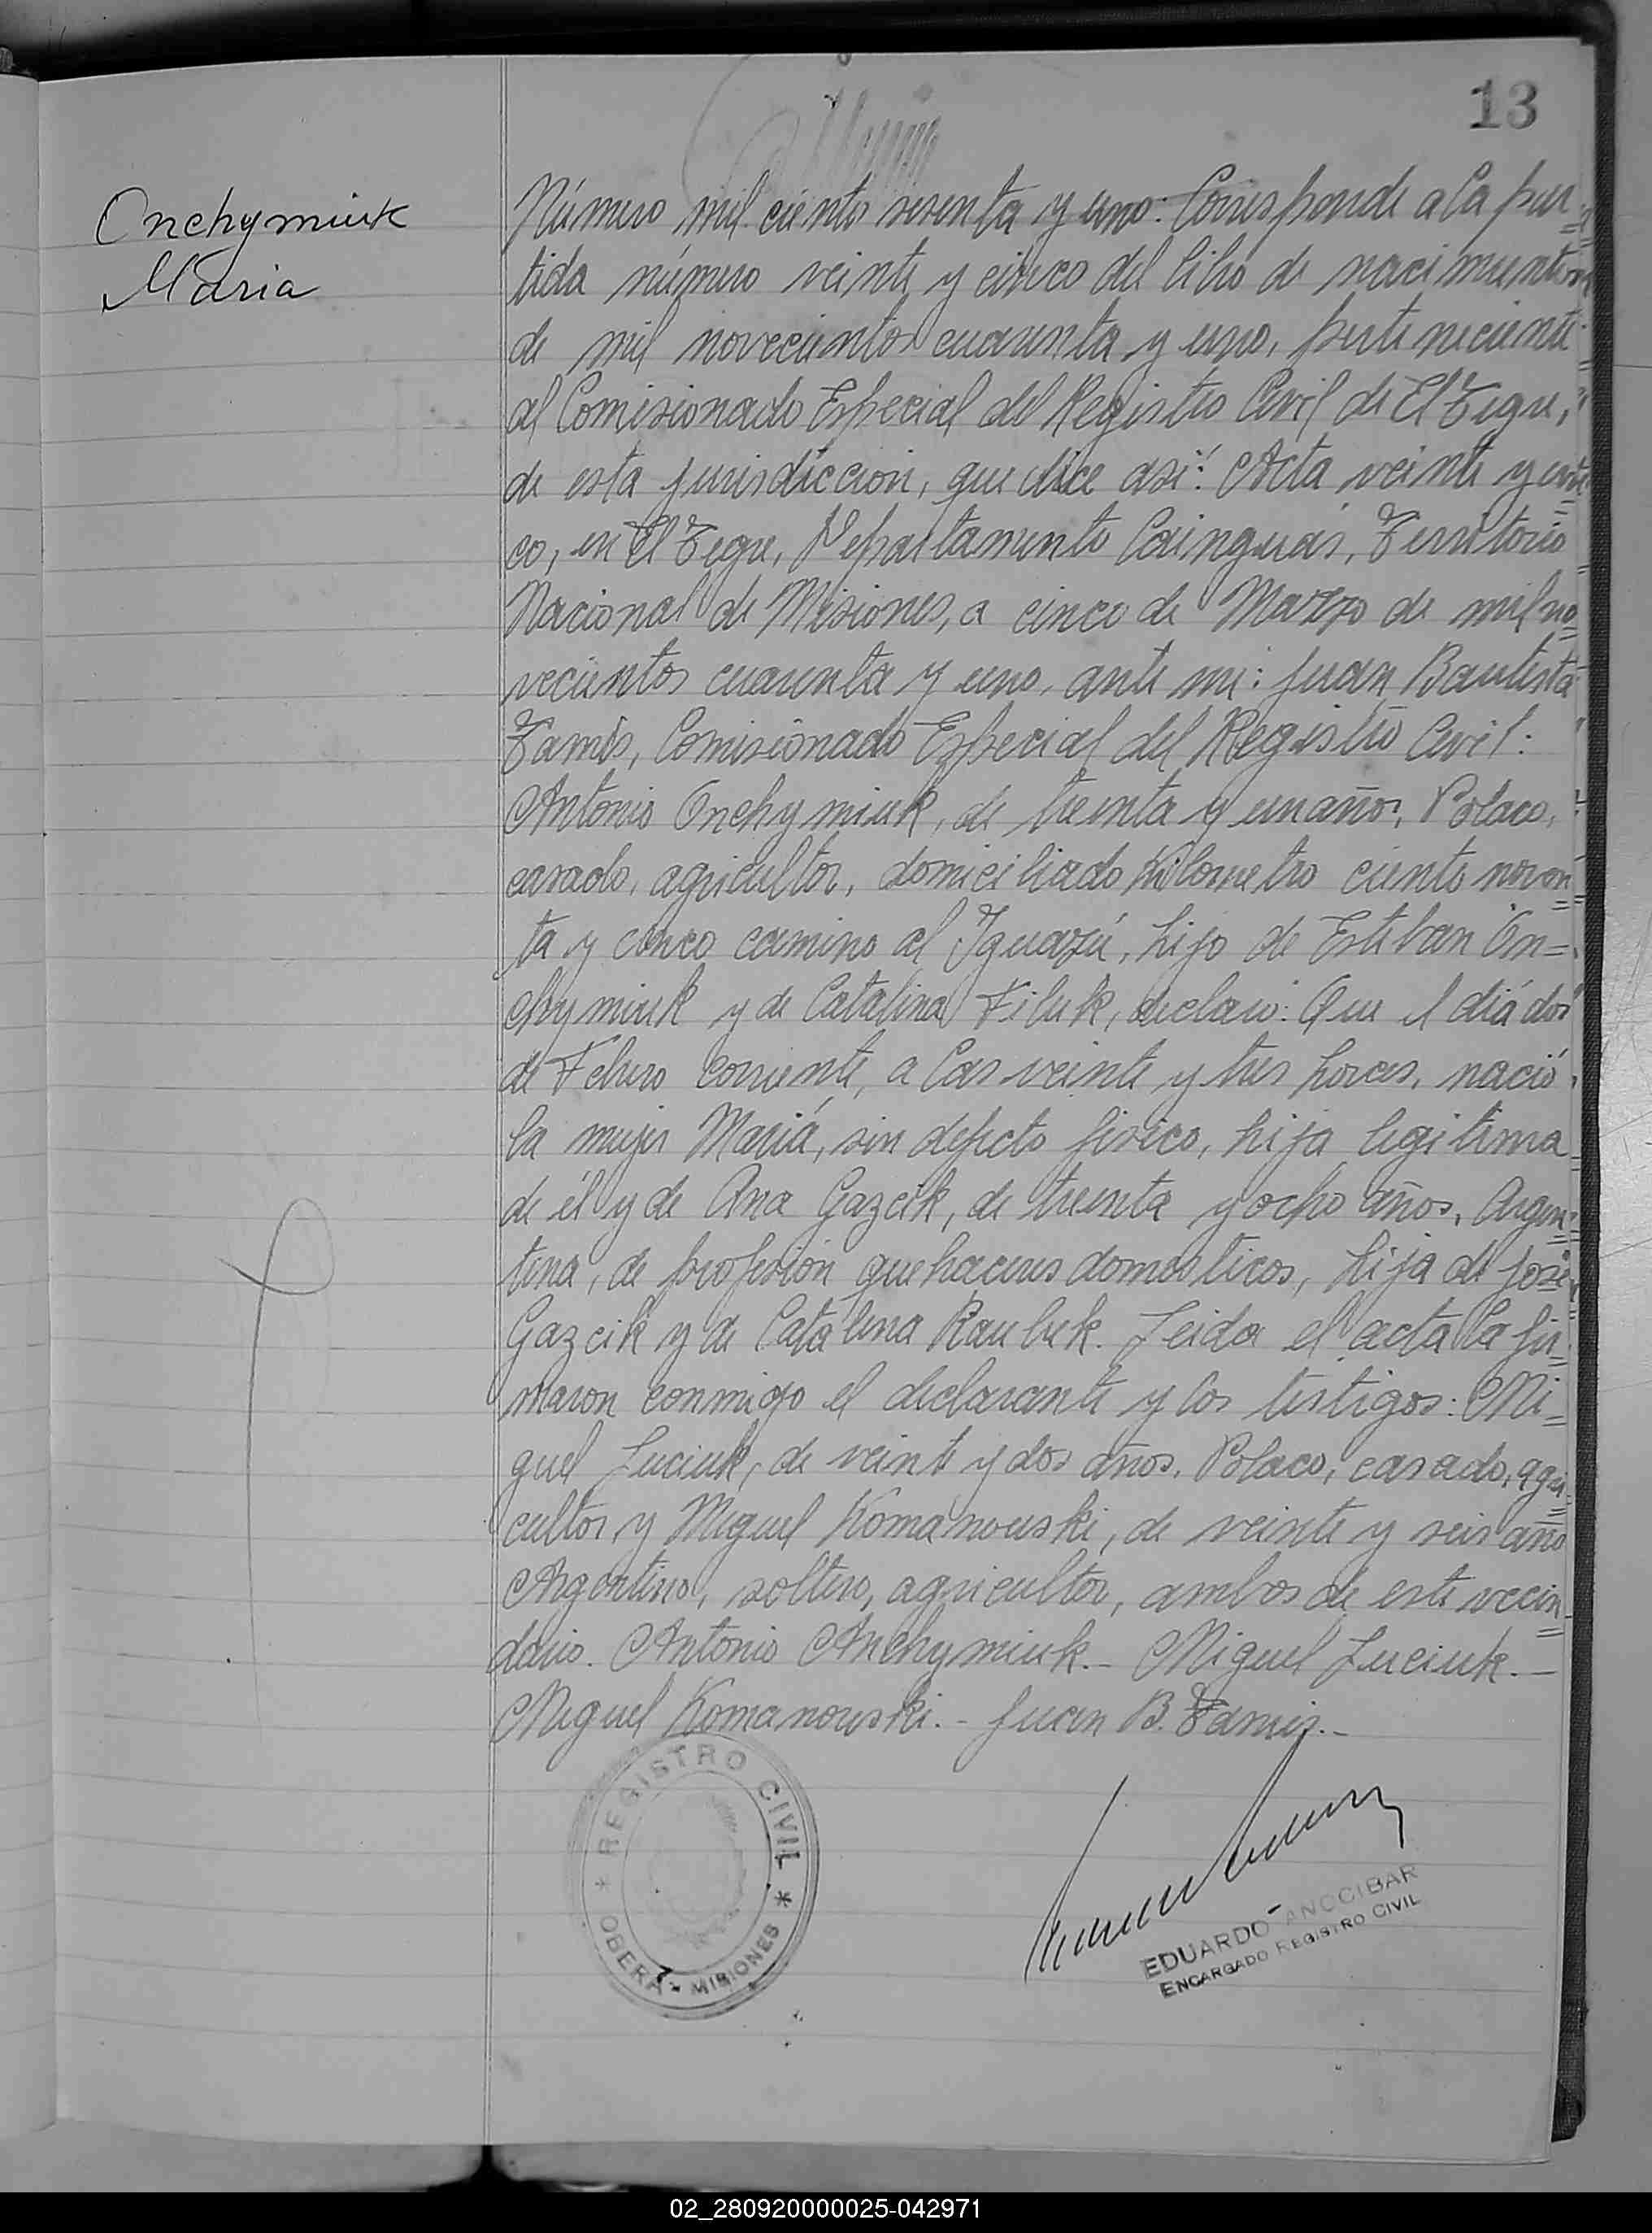 13
Onchymiuk
Maria
Número mil ciento sesenta y uno: Corresponde a la par=
tida número veinte y cinco del libro de nacimientos
de mil novecientos cuarenta y uno, perteneciente
al Comisionado Especial del Registro Civil de El Tigre,
de esta jurisdicción, que dice así: Acta veinte y cin=
co, en El Tigre, Departamento Cainguás, Territorio
Nacional de Misiones, a cinco de Marzo de mil no=
vecientos cuarenta y uno, ante mi: Juan Bautista
Comisionado Especial del Registro Civil:
Antonio Onchymiuk, de treinta y un años, Polaco,
casado, agricultor, domiciliado Kilometro ciento noven=
ta y cinco camino al Iguazú, hijo de Esteban On=
chymiuk y de Catalina Filuk, declaró: Que el día dos
de Febrero corriente, a las veinte y tres horas, nació
la mujer María, sin defecto fisico, hija legitima
de él y de Ana Gazcik, de treinta y ocho años, Argen=
tina, de profesión quehaceres domésticos, hija de José
Gazcik y de Catalina Leida el acta la fir=
maron conmigo el declarante y los testigos: Mi=
guel Luciuk, de veinte y dos años, Polaco, casado, agri=
cultor y Miguel Komanouski, de veinte y seis año
Argentino, soltero, agricultor, ambos de este vecin=
dario. Antonio Anchymiuk.- Miguel Luciuk.-
Miguel Komanouski.- Juan B.
REGISTRO CIVIL
* OBERA - MISIONES *
EDUARDO ANOCIBAR
ENCARGADO REGISTRO CIVIL
02_280920000025-042971